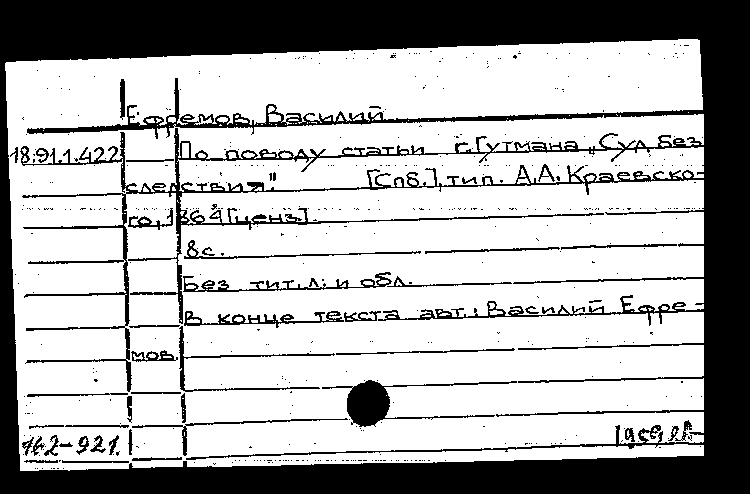 Ефремов, Василий
18.91.1.422 По поводу статьи г.Гутмана „Суд без
следствия". [Спб.], тип. А.А. Краевско-
го, 1864 [ценз].
8с.
Без тит.л. и обл.
В конце текста авт.: Василий Ефре-
мов.
162-921.